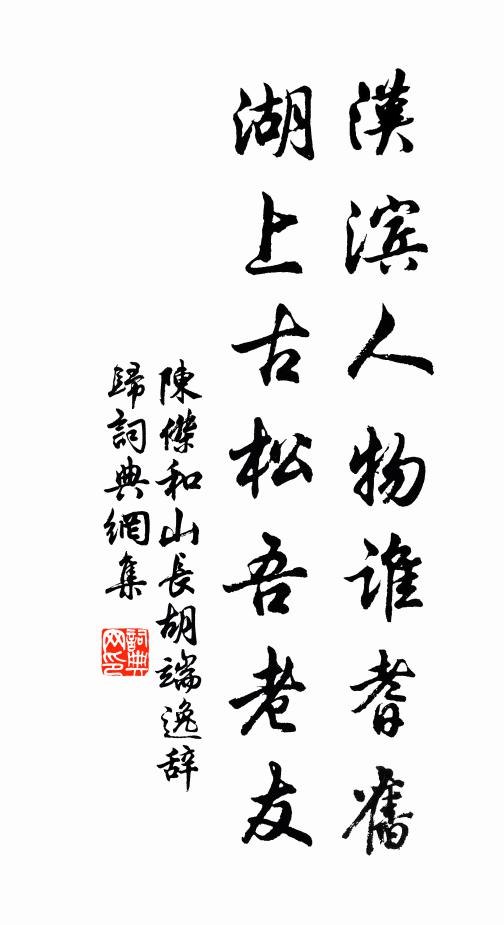 漢滨人物誰耆舊
湖上古松吾老友
陳傑和山長胡端逸辞
歸詞典網集
詞典网印